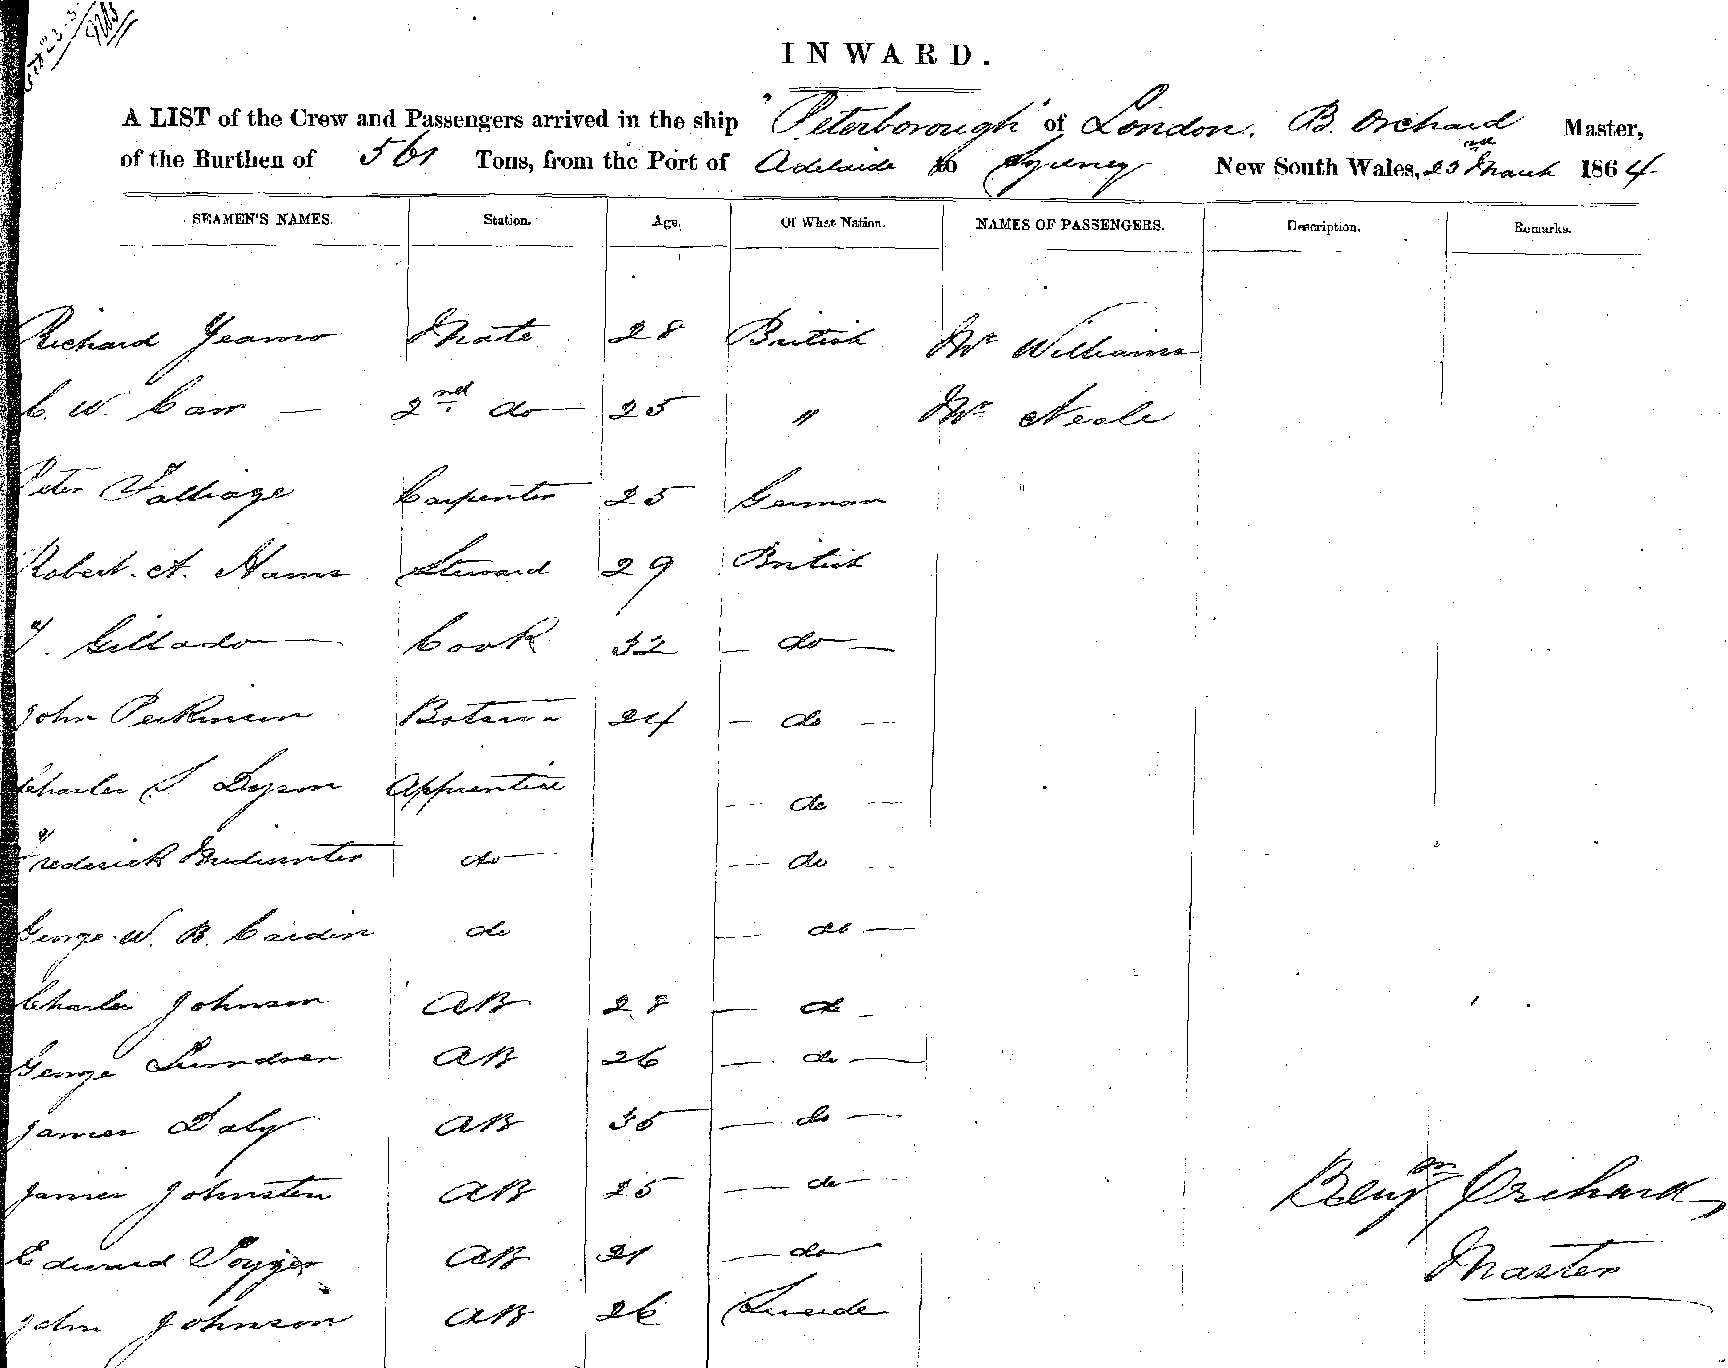 INWARD.
A LIST of the Crew and Passengers arrived in the ship "Peterborough" of London, B. Orchard Master,
of the Burthen of 561 Tons, from the Port of Adelaide to Sydney New South Wales, 23rd March 1864
SEAMEN'S NAMES. Station. Age. Of What Nation. NAMES OF PASSENGERS. Description. Remarks.
Richard Mate 28 British Mr Williams
C. W. Carr — 2nd do — 25 " Mr Neale
Peter Carpenter 25 German
Robert. A. Steward 29 British
Cook 32 — do —
John Perkinson 24 — do —
Charles S Dyson Apprentice — do —
Frederick Midwinter do — — do
George. W. B. Cardin do — do —
Charles Johnson AB 28 — do —
George AB 26 — do —
James Daly AB 35 — do —
James Johnston AB 25 — do —
Edward AB 21 — do
John Johnson AB 26 Swede
Benjn Orchard
Master